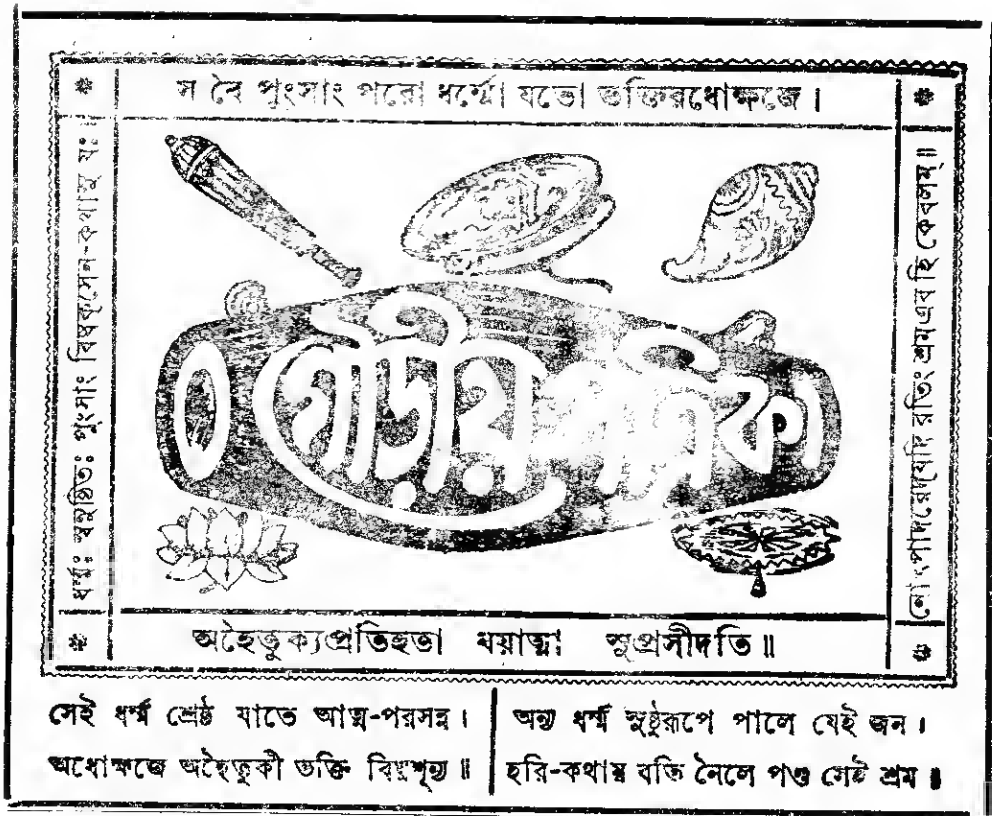 স বৈ পুংসাং পরো ধর্ম্মো যতো ভক্তিরধোক্ষজে।
ধর্ম্মঃ স্বনুষ্ঠিতঃ পুংসাং বিষ্বক্‌সেন-কথাসু যঃ।
নোৎপাদয়েদ্‌যদি রতিং শ্রমএব হি কেবলম্॥
গৌড়ীয় পত্রিকা
অহৈতুক্যপ্রতিহতা যয়াত্মা সুপ্রসীদতি॥
সেই ধর্ম্ম শ্রেষ্ঠ যাতে আত্ম-পরসন্ন।
অধোক্ষজে অহৈতুকী ভক্তি বিঘ্নশূন্য॥
অন্য ধর্ম্ম সুষ্ঠুরূপে পালে যেই জন।
হরি-কথায় রতি নৈলে পণ্ড সেই শ্রম॥